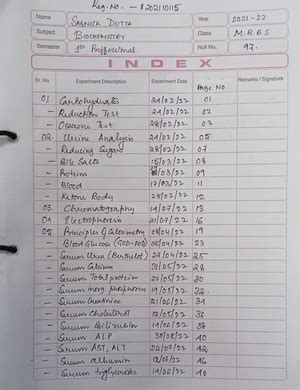 Reg. No. - 1202110115
Name SAGNICK DUTTA Year 2021-22
Subject BIOCHEMISTRY Class M.B.B.S
Semester 1st Proffessional Roll No. 97.
INDEX
Sr. No. Experiment Description Experiment Date Page No Remarks / Signature
01. Carbohydrates 24/02/22 01
- Reduction Test 24/02/22 02
- Osazone Test 28/02/22 03
02. Urine Analysis 24/02/22 05
- Reducing Sugars 28/02/22 07
- Bile Salts 15/03/22 08
- Proteins /03/22 09
- Blood 17/03/22 11
- Ketone Body 28/02/22 12
03. Chromatography 14/07/22 13
04. Electrophoresis 21/07/22 16
05. Principles of Colorimetry 07/04/22 19
- Blood Glucose (GOD-POD) 04/22 23
- Serum Urea (Berthelot) 22/04/22 25
- Serum Calcium 31/05/22 28
- Serum Total protein 27/05/22 30
- Serum Inorg. phosphorus 19/05/22 32
- Serum Creatinine 21/06/22 34
- Serum Cholesterol 12/05/22 36
- Serum Bilirubin 14/06/22
- Serum ALP 30/06/22 40
- Serum AST, ALT 22/07/22 42
- Serum albumin 22 46
- Serum triglycerides 14/06/22 48